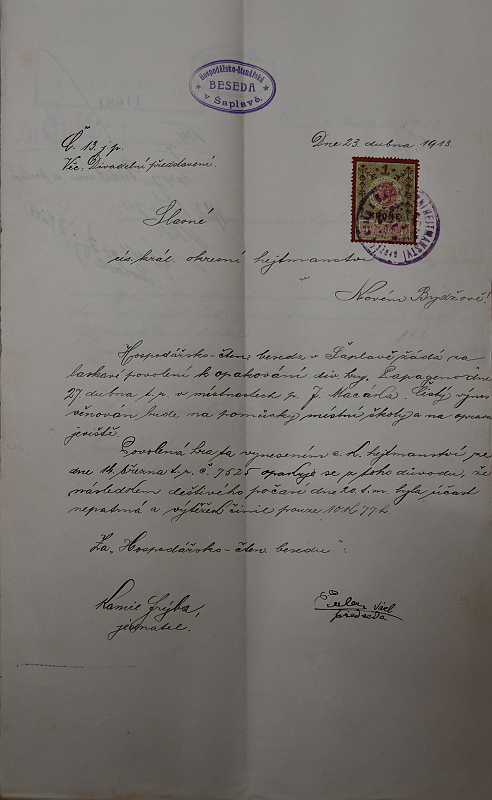 Hospodářsko-čtenářská
BESEDA
v Šaplavě.
Č. 13 j. p.
Dne 23. dubna 1913.
Věc: Divadelní představení.
1
Slavné
cís. král. okresní hejtmanství
v
Novém Bydžově!
Hospodářsko-čten. beseda v Šaplavě žádá za
laskavé povolení k opakování div. hry. Papageno dne
27. dubna t. r. v místnostech p. J. Macana. Čistý výnos
věnován bude na pomůcky místní školy a na opravu
jeviště.
Povolená hra ta vynesením c. k. hejtmanství ze
dne 14. března t. r. č. 7625 opakuje se z toho důvodu, že
následkem deštivého počasí dne 20. t. m. byla účast
nepatrná a výtěžek činil pouze 10 K 77 h.
Za „Hospodářsko-čten. besedu":
Kamil Frýba,
jednatel.
Václ
předseda